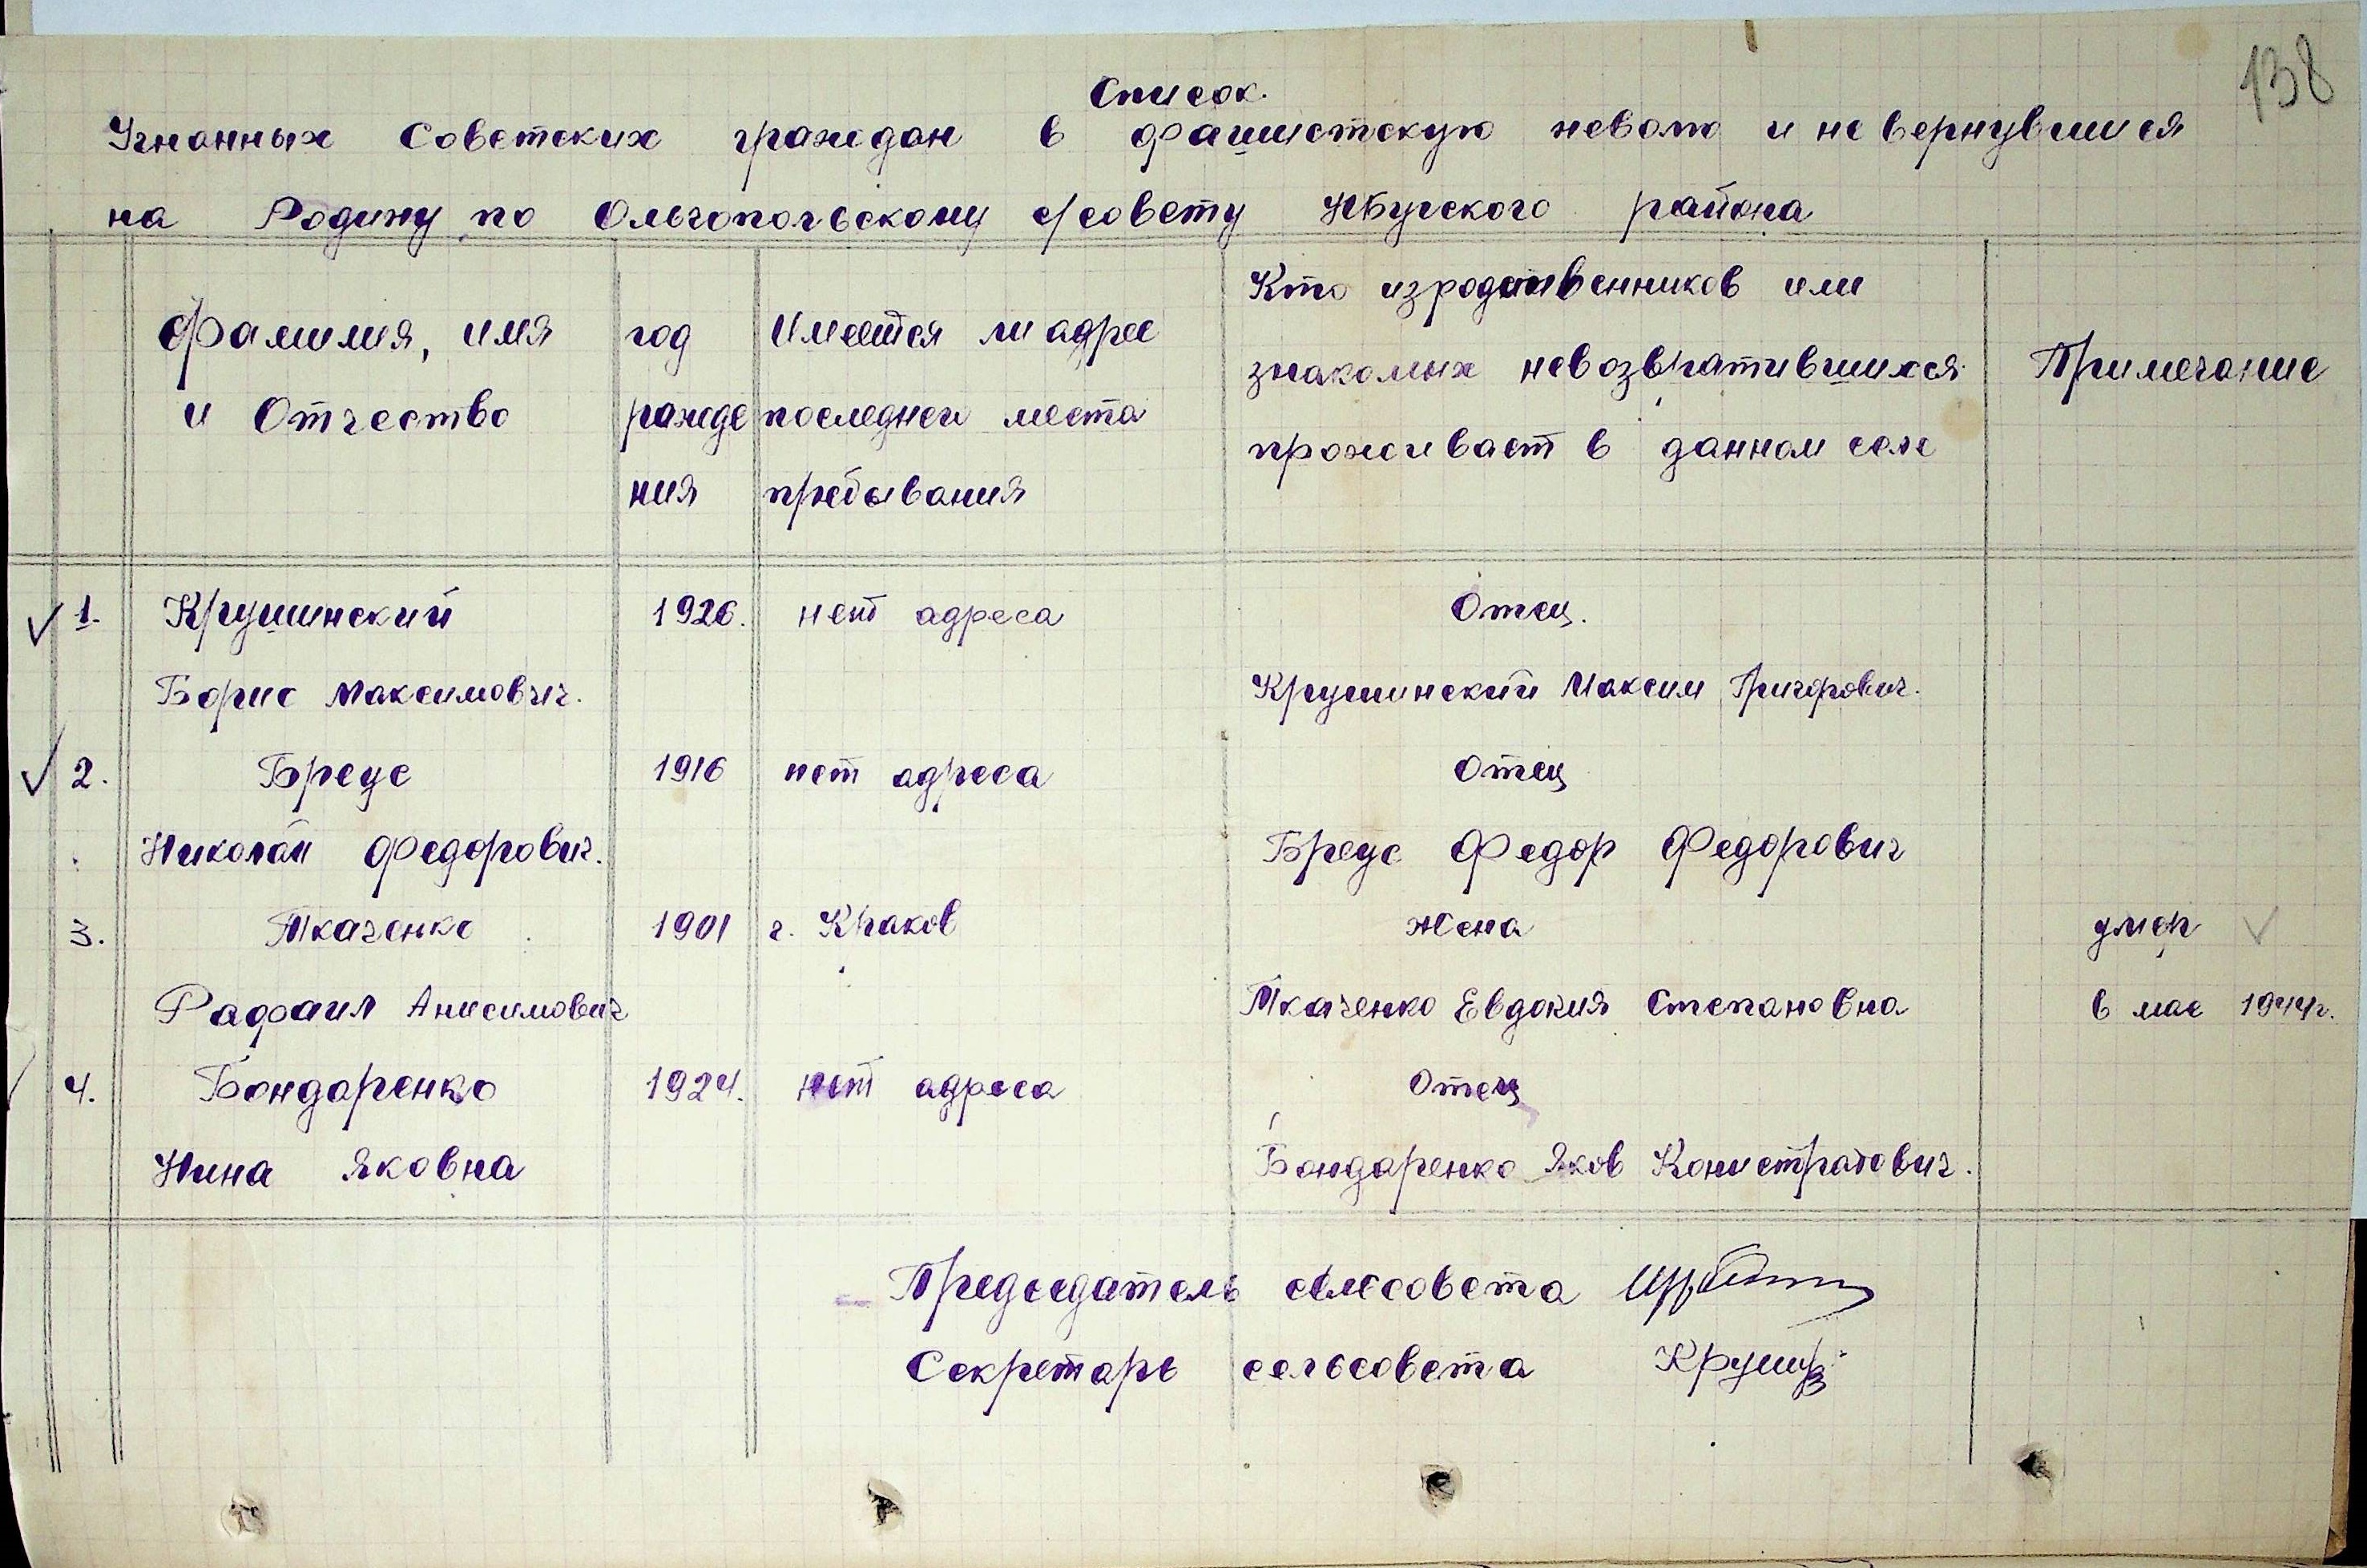 138
Список.
Угнанных Советских граждан в фашистскую неволю и невернувшися
на Родину по Ольгопольскому с/совету НБугского района
Фамилия, имя
и Отчество
год
рожде
ния
Имеется ли адрес
последнего места
пребывания
Кто изродственников или
знакомых невозвратившихся
проживает в данном селе
Примечание
1. Крушинский 1926. нет адреса Отец.
Борис Максимович. Крушинский Максим Григорович.
2. Бреус 1916 нет адреса Отец
Николай Федорович. Бреус Федор Федорович
3. Ткаченко 1901 г. Краков Жена умер
Рафаил Анисимович Ткаченко Евдокия Степановна в мае 1944г.
4. Бондаренко 1924. нет адреса Отец
Нина Яковна Бондаренко Яков Конистратович.
Председатель сельсовета
Секретарь сельсовета